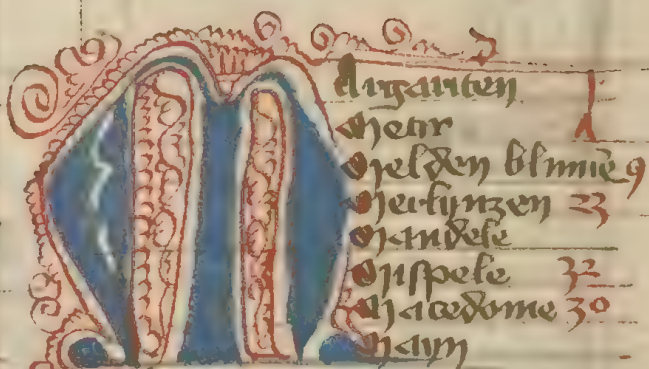 Margariten 1
Metir 1
Melden blume 9
Merlynzen 23
Mandele
Mispele 32
Macedome 30
Mayn